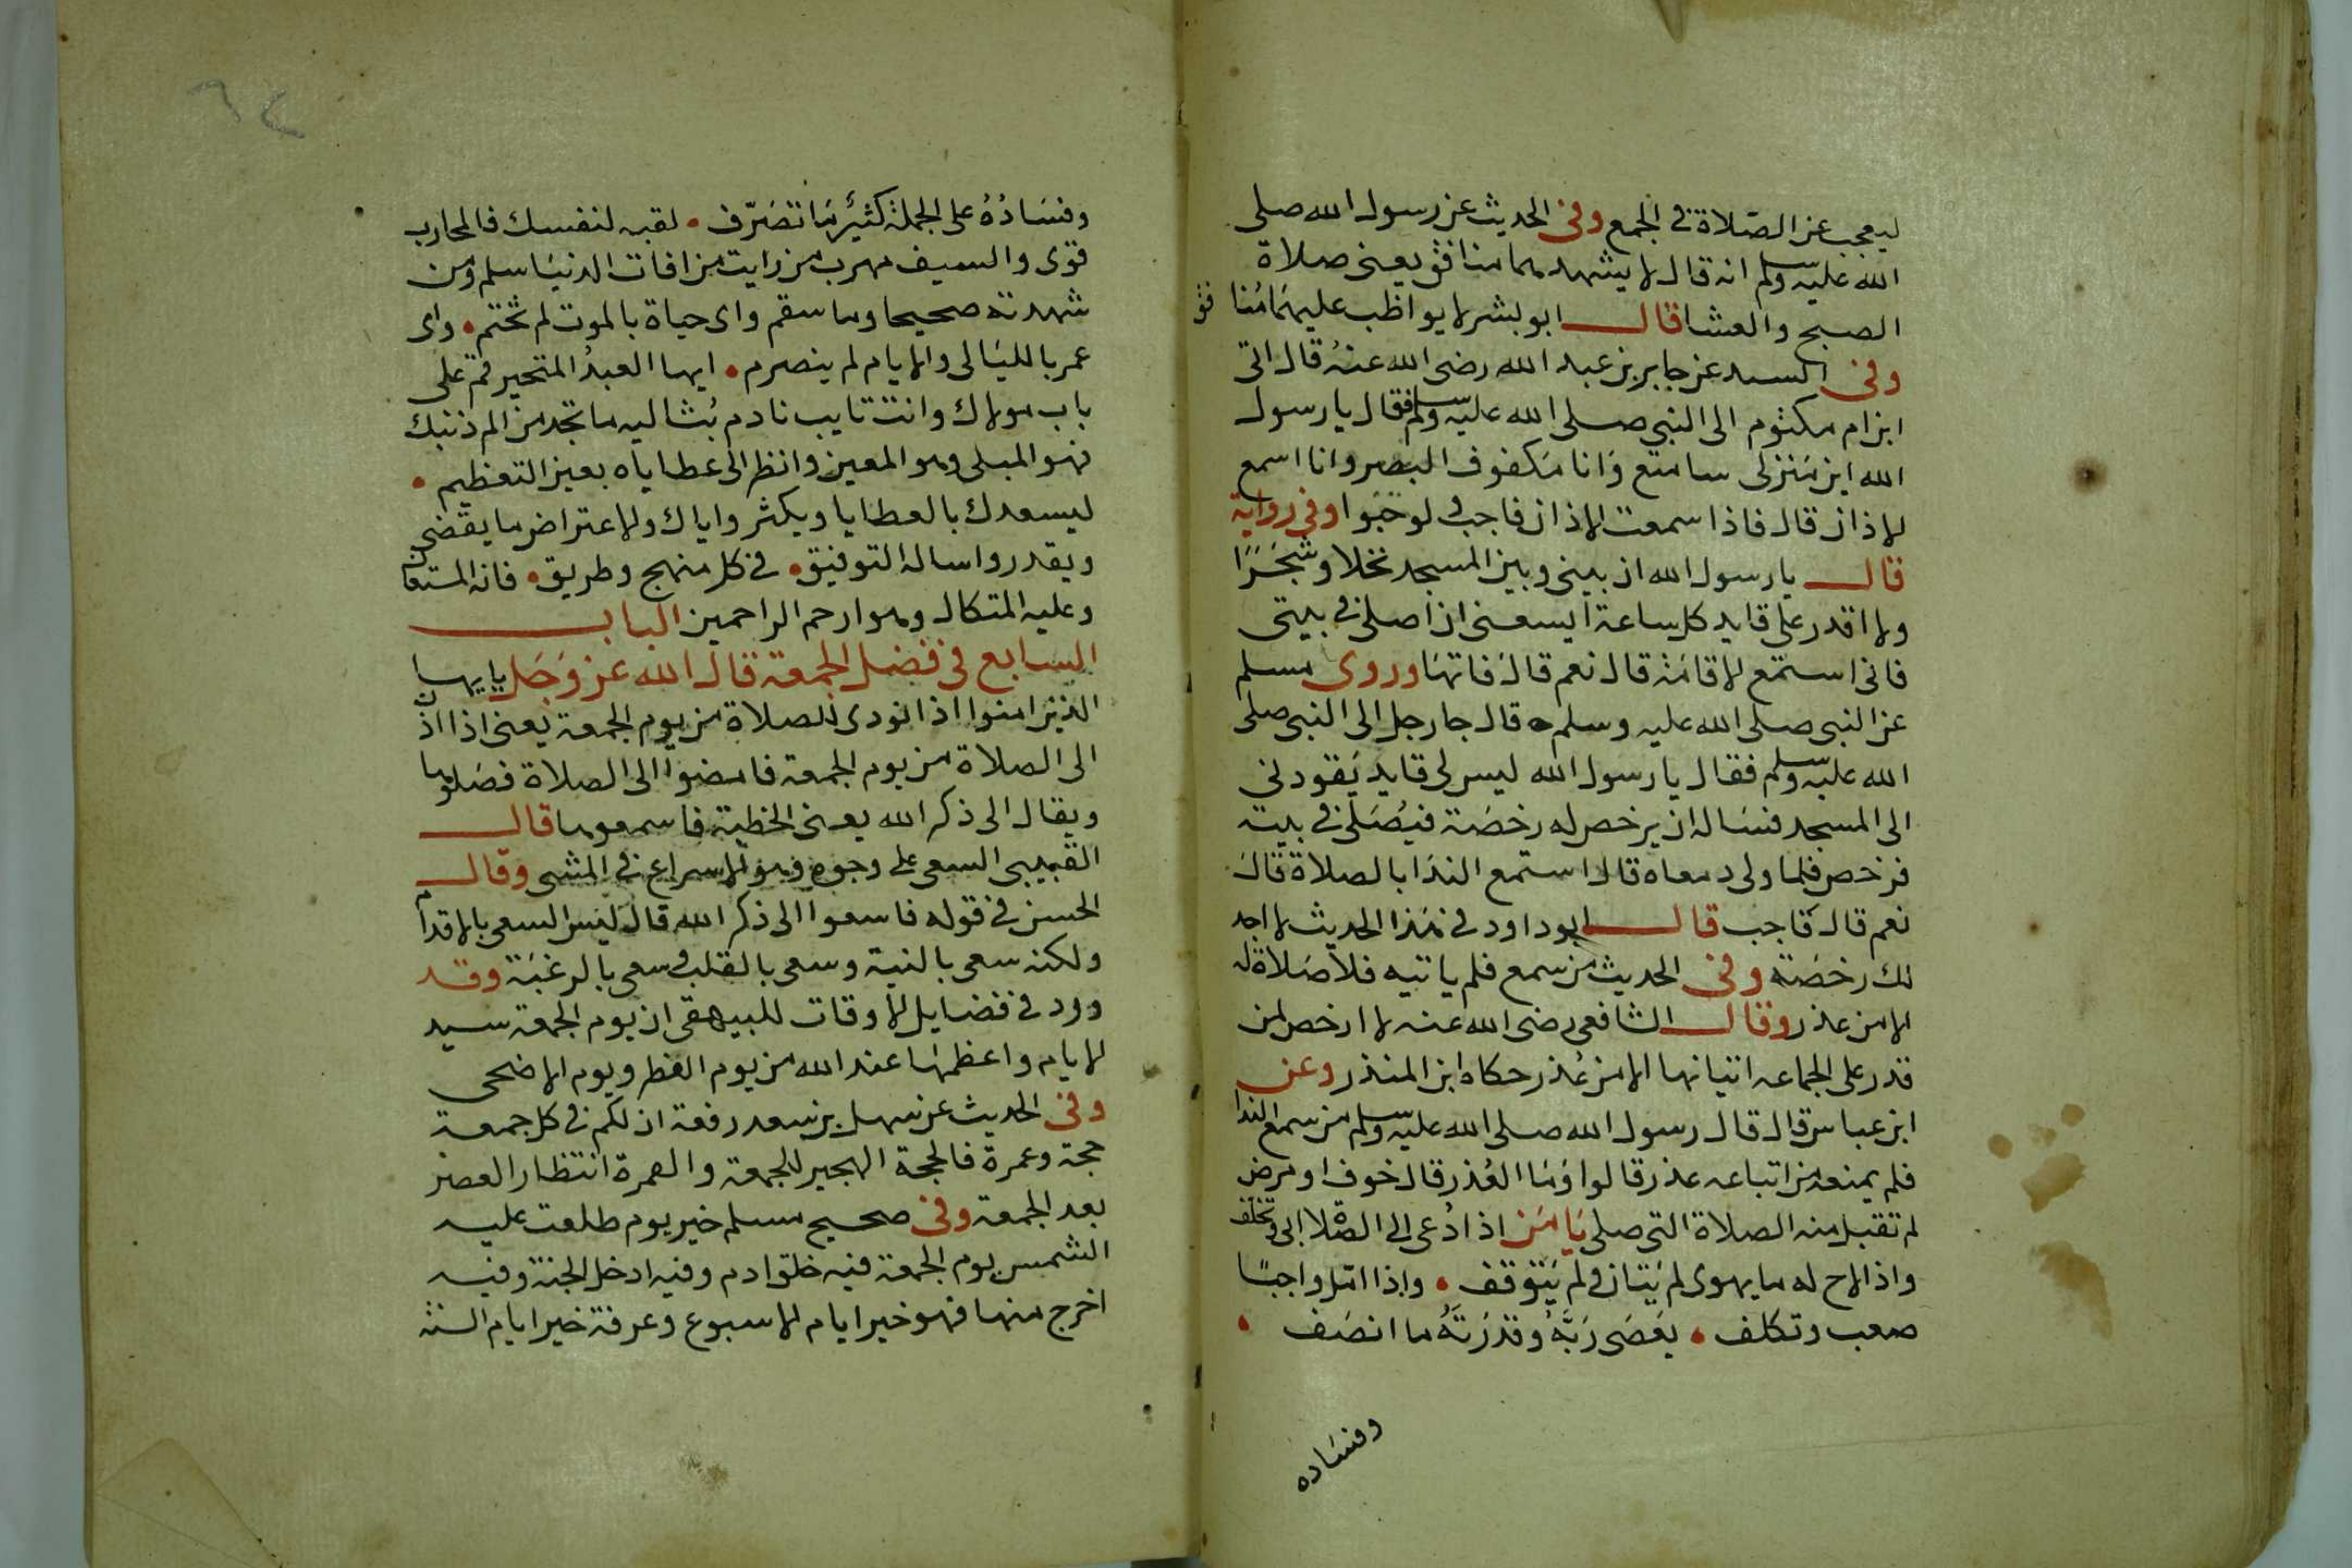 ليعجب عن الصلاة في الجمع وفي الحديث عن رسول الله صلى
الله عليه وسلم انه قال لا يشهدهما منافق يعني صلاة
الصبح والعشا قال ابو بشر لا يواظب عليهما منا فق
وفي المسند عن جابر بن عبد الله رضي الله عنه قال اتى
ابن ام مكتوم الى النبي صلى الله عليه وسلم فقال يا رسول
الله ان منزلي شاسع وانا مكفوف البصر وانا اسمع
الاذان قال فاذا سمعت الاذان فاجب ولو حبوا وفي رواية
قال يا رسول الله ان بيني وبين المسجد نخلا وشجرا
ولا اقدر على قايد كل ساعة ايسعني ان اصلي في بيتي
فاني استمع الاقامة قال نعم قال فاتها وروى مسلم
عن النبي صلى الله عليه وسلم قال جا رجل الى النبي صلى
الله عليه وسلم فقال يا رسول الله ليس لي قايد يقودني
الى المسجد فساله ان يرخص له رخصة فيصلي في بيته
فرخص فلما ولى دعاه قال استمع الندا بالصلاة قال
نعم قال فاجب قال ابو داود في هذا الحديث لا اجد
لك رخصة وفي الحديث من سمع فلم ياتيه فلا صلاة له
الا من عذر وقال الشافعي رضي الله عنه لا ارخص لمن
قدر على الجماعه اتيانها الا من عذر حكاه ابن المنذر وعن
ابن عباس قال قال رسول الله صلى الله عليه وسلم من سمع الندا
فلم يمنعه من اتباعه عذر قالوا وما العذر قال خوف او مرض
لم تقبل منه الصلاة التي صلى يا من اذا دعي الى الصلاة ابى وتخلف
واذا لاح له ما يهوى لم يتان ولم يتوقف واذا امل واجبا
صعب وتكلف يعصى ربه وقدرته ما انصف
وفساده
٦٤
وفساده على الجملة كثير ما تصرف لقبه لنفسك فالمحارب
قوى والسيف مهرب من رايت من افات الدنيا سلم ومن
شهدته صحيحا وما سقم واى حياة بالموت لم تختم واى
عمر بالليالى والايام لم ينصرم ايها العبد المتحير قم على
باب مولاك وانت تايب نادم بث اليه ما تجد من الم ذنبك
فهو المبلى وهو المعين وانظر الى عطاياه بعين التعظيم
ليسعدك بالعطايا ويكثر واياك والاعتراض ما يقضى
ويقدر واساله التوفيق في كل منهج وطريق فانه المستعان
وعليه المتكال وهو ارحم الراحمين الباب
السابع في فضل الجمعة قال الله عز وجل يا يها
الذين امنوا اذا نودى للصلاة من يوم الجمعة يعني اذا اذن
الى الصلاة من يوم الجمعة فامضوا الى الصلاة فصلوها
ويقال الى ذكر الله يعني الخطبة فاسمعوها قال
القتيبى السعى على وجوه وهو الاسراع في المشى وقال
الحسن في قوله فاسعوا الى ذكر الله قال ليس السعى بالاقدام
ولكنه سعى بالنية وسعى بالقلب وسعى بالرغبة وقد
ورد في فضايل الاوقات للبيهقى ان يوم الجمعة سيد
الايام واعظمها عند الله من يوم الفطر ويوم الاضحى
وفي الحديث عن سهل بن سعد رفعة ان لكم في كل جمعة
حجة وعمرة فالحجة الهجير للجمعة والعمرة انتظار العصر
بعد الجمعة وفي صحيح مسلم خير يوم طلعت عليه
الشمس يوم الجمعة فيه خلق ادم وفيه ادخل الجنة وفيه
اخرج منها فهو خير ايام الاسبوع وعرفة خير ايام السنة